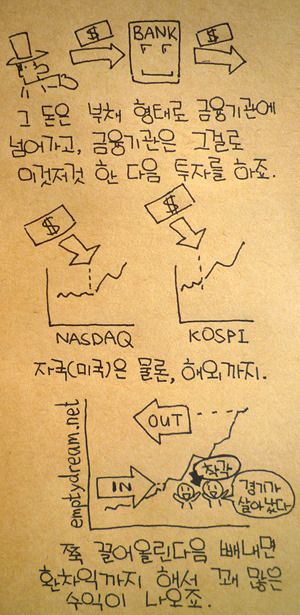 $ BANK $
그 돈은 부채 형태로 금융기관에
넘어가고, 금융기관은 그걸로
이것저것 한 다음 투자를 하죠.
$ $
NASDAQ KOSPI
자국(미국)은 물론, 해외까지.
emptydream.net
OUT
IN
착각
경기가
살아났다
쭉 끌어올린다음 빼내면
환차익까지 해서 꽤 많은
수익이 나오죠